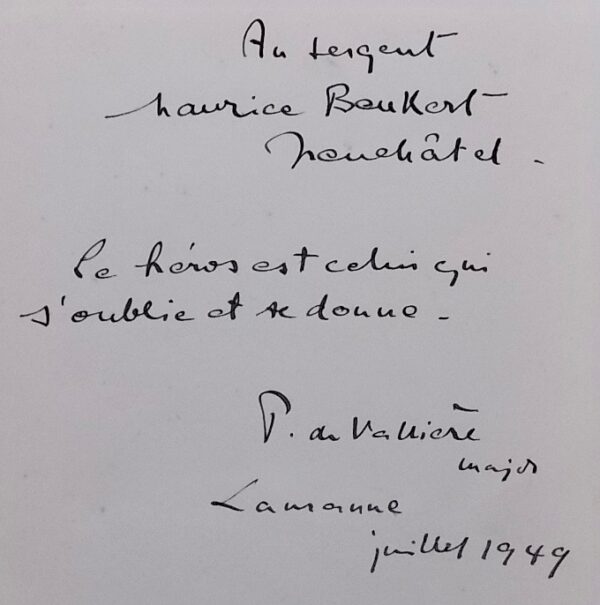 Au sergent
Maurice Beukert
Neuchâtel.
Le héros est celui qui
s'oublie et se donne.
P. de Vallière
major
Lausanne
juillet 1949